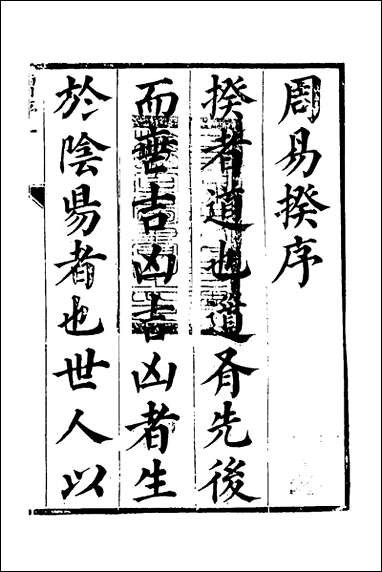 周易揆序
揆者道也道有先後
而無吉凶吉凶者生
於陰昜者也世人以